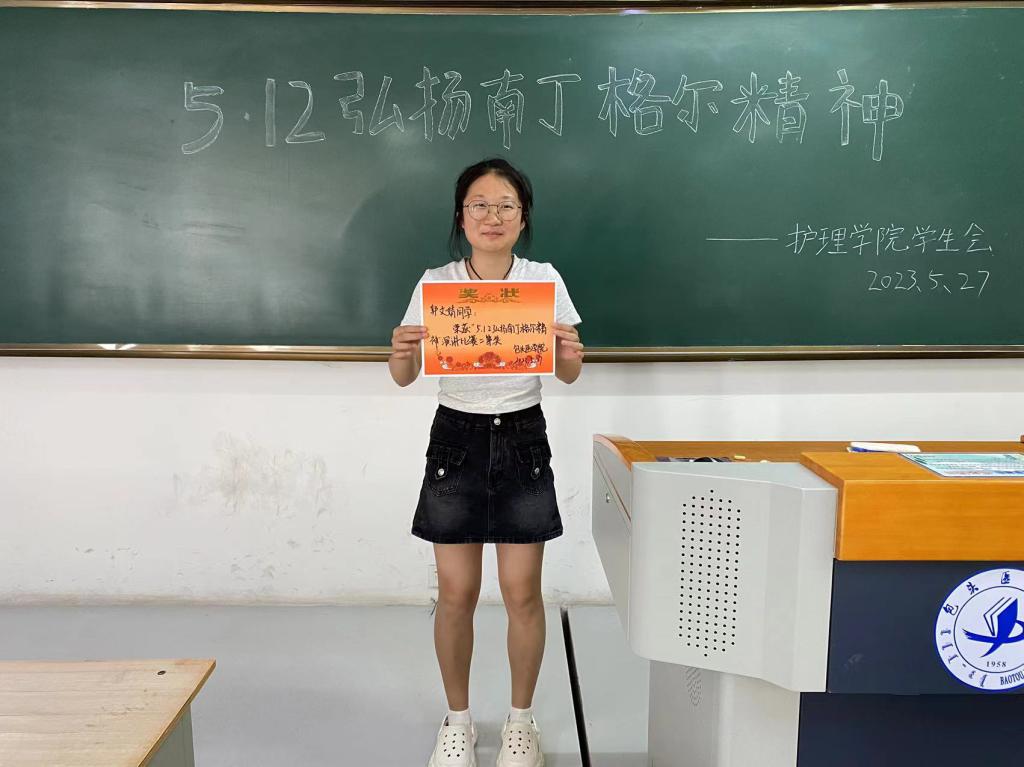 5.12弘扬南丁格尔精神
——护理学院学生会
2023.5.27
奖状
郭文婧同学:
荣获"5.12弘扬南丁格尔精
神"演讲比赛二等奖
包头医学院
包头医
1958
BAOTOU